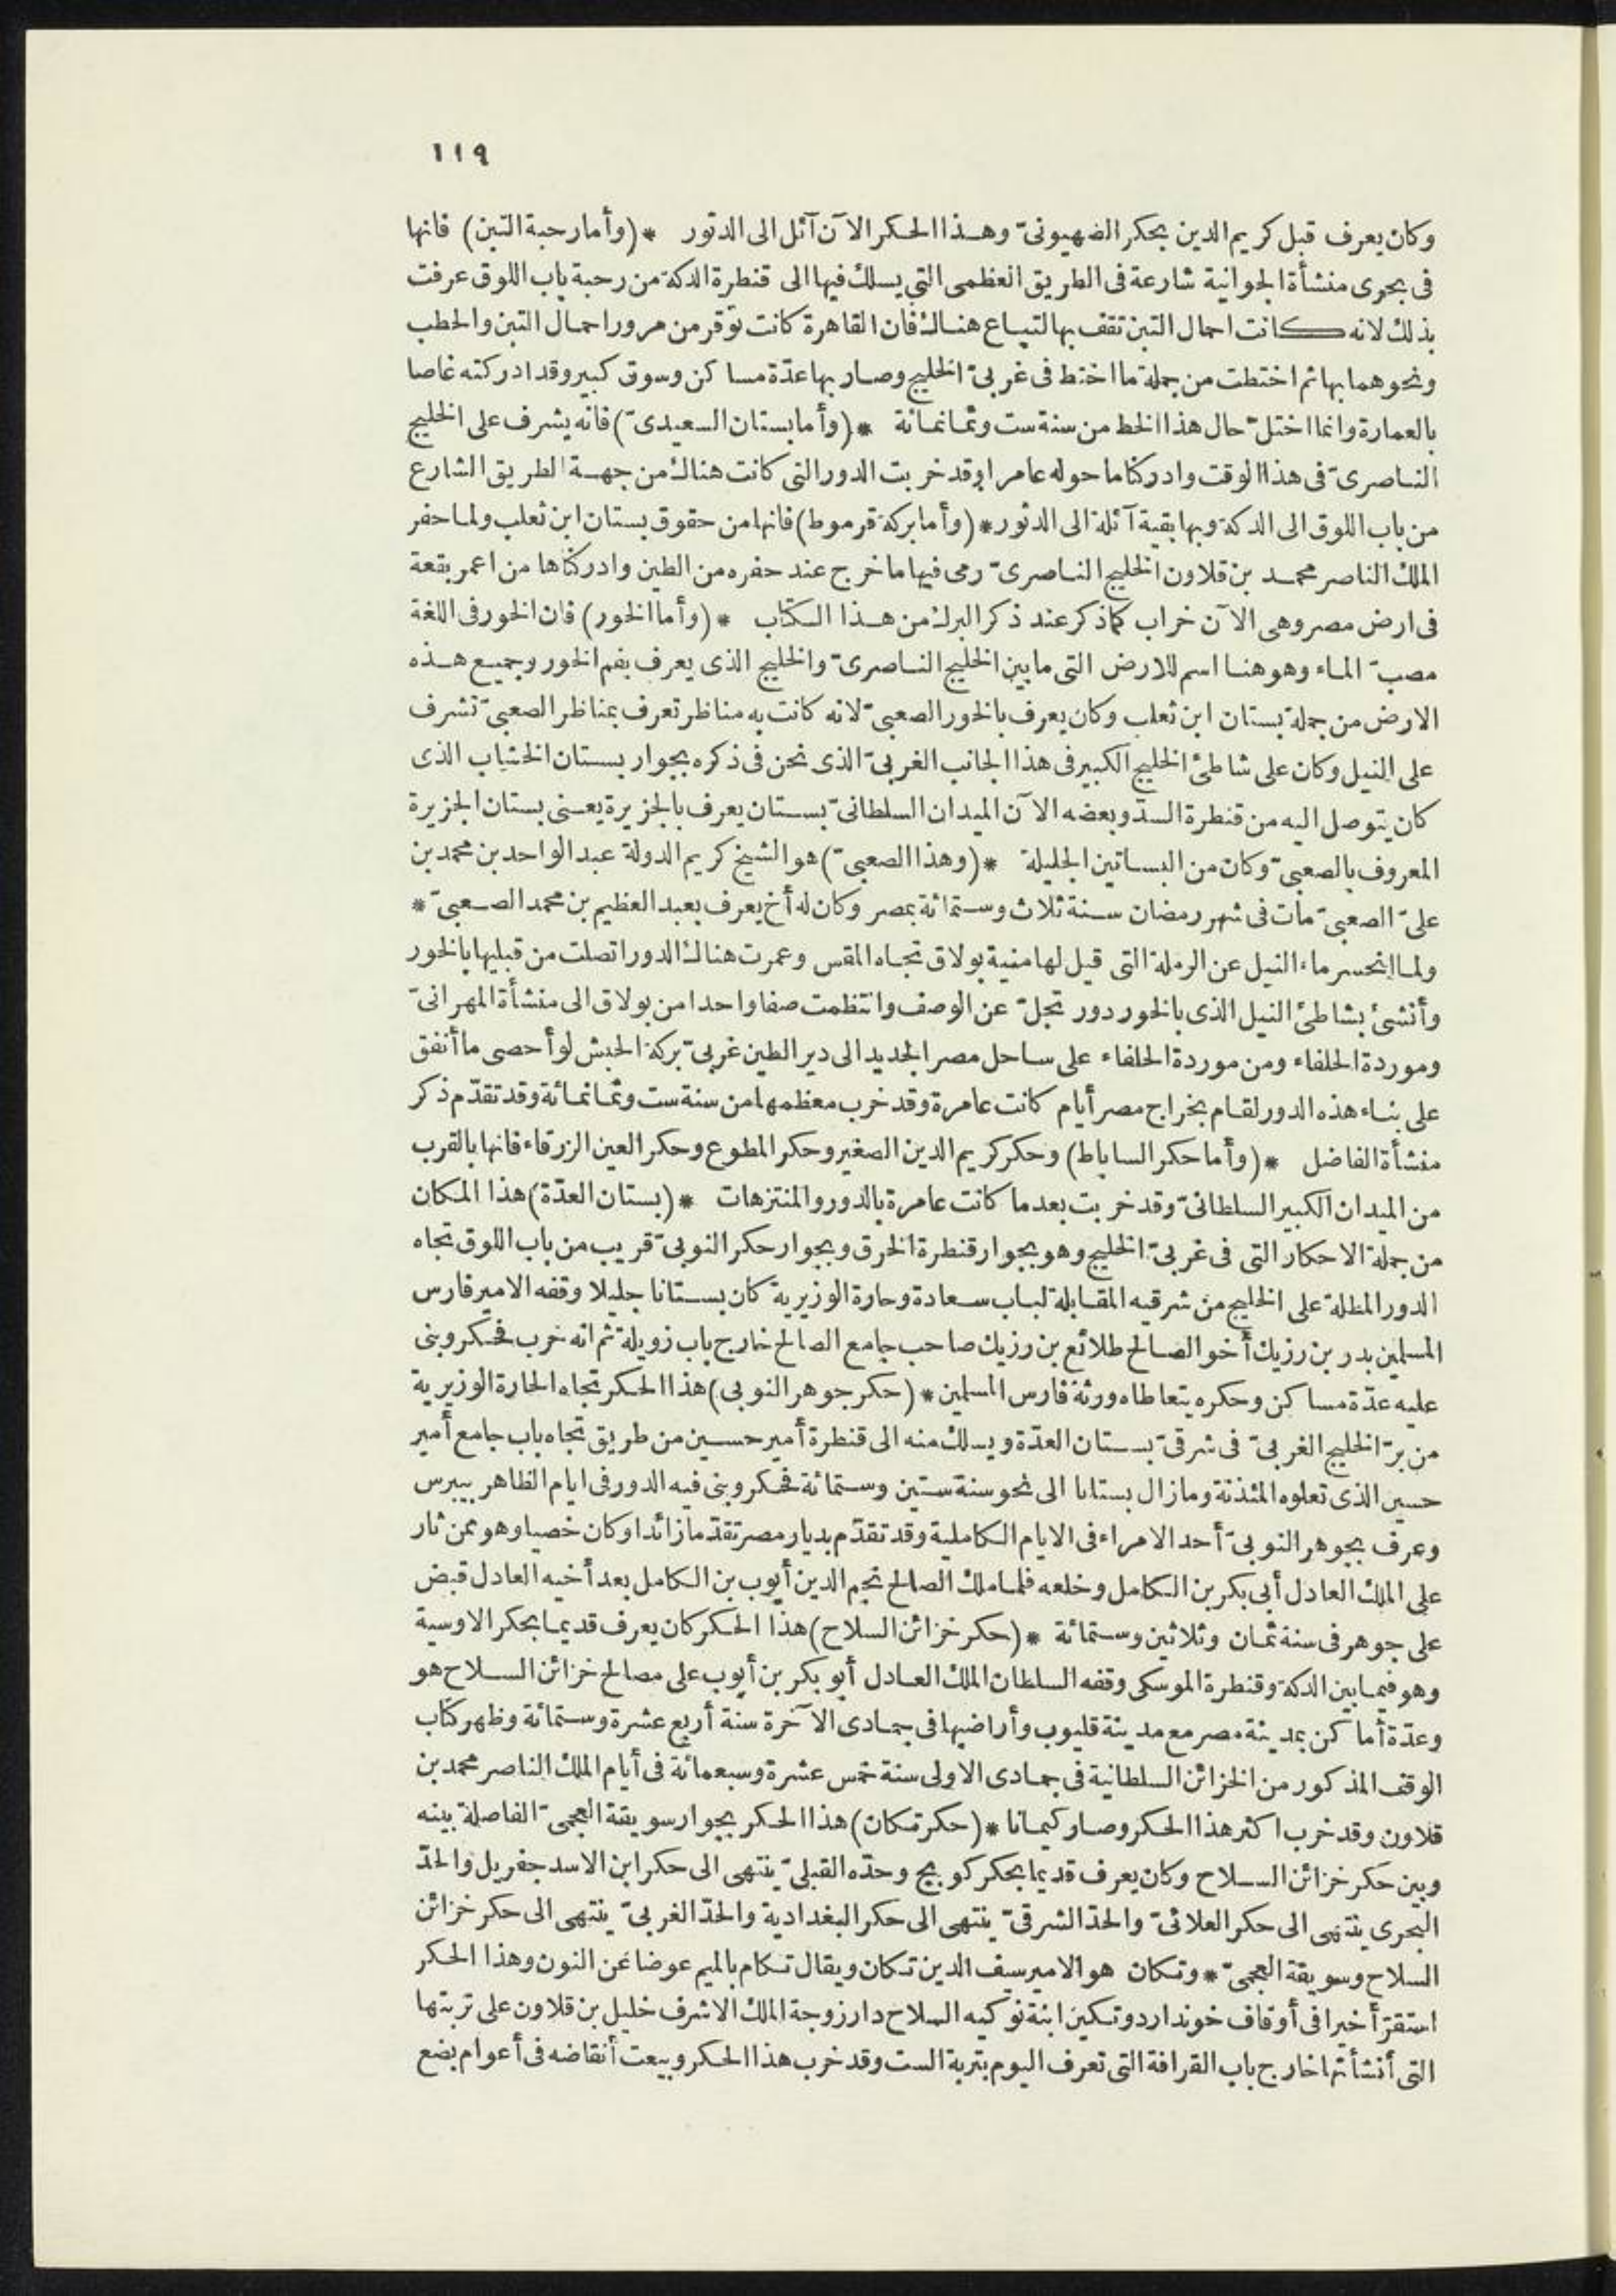 ١١٩
وكان يعرف قبل كريم الدين بحكر الصهيونىّ وهذا الحكر الآن آئل الى الدثور * (وأما رحبة التبن) فانها
فى بحرى منشأة الجوانية شارعة فى الطريق العظمى التى يسلك فيها الى قنطرة الدكة من رحبة باب اللوق عرفت
بذلك لانه كانت احمال التبن تقف بها لتباع هناك فان القاهرة كانت توقر من مرور احمال التبن والحطب
ونحوهما بها ثم اختطت من جملة ما اختط فى غربىّ الخليج وصار بها عدّة مساكن وسوق كبير وقد ادركته غاصا
بالعمارة وانما اختلّ حال هذا الخط من سنة ست وثمانمائة * (وأما بستان السعيدىّ) فانه يشرف على الخليج
الناصرىّ فى هذا الوقت وادركنا ما حوله عامرا وقد خربت الدور التى كانت هناك من جهة الطريق الشارع
من باب اللوق الى الدكة وبها بقية آئلة الى الدثور * (وأما بركة قرموط) فانها من حقوق بستان ابن ثعلب ولما حفر
الملك الناصر محمد بن قلاون الخليج الناصرىّ رمى فيها ما خرج عند حفره من الطين وادركناها من اعمر بقعة
فى ارض مصر وهى الآن خراب كما ذكر عند ذكر البرك من هذا الكتاب * (وأما الخور) فان الخور فى اللغة
مصبّ الماء وهو هنا اسم للارض التى ما بين الخليج الناصرىّ والخليج الذى يعرف بفم الخور وجميع هذه
الارض من جملة بستان ابن ثعلب وكان يعرف بالخور الصعبىّ لانه كانت به مناظر تعرف بمناظر الصعبىّ تشرف
على النيل وكان على شاطئ الخليج الكبير فى هذا الجانب الغربىّ الذى نحن فى ذكره بجوار بستان الخشاب الذى
كان يتوصل اليه من قنطرة السدّ وبعضه الآن الميدان السلطانىّ بستان يعرف بالجزيرة يعنى بستان الجزيرة
المعروف بالصعبىّ وكان من البساتين الجليلة * (وهذا الصعبىّ) هو الشيخ كريم الدولة عبد الواحد بن محمد بن
علىّ الصعبىّ مات فى شهر رمضان سنة ثلاث وستمائة بمصر وكان له أخ يعرف بعبد العظيم بن محمد الصعبىّ *
ولما انحسر ماء النيل عن الرملة التى قيل لها منية بولاق تجاه المقس وعمرت هناك الدور اتصلت من قبليها بالخور
وأنشئ بشاطئ النيل الذى بالخور دور تجلّ عن الوصف وانتظمت صفا واحدا من بولاق الى منشأة المهرانىّ
وموردة الحلفاء ومن موردة الحلفاء على ساحل مصر الجديد الى دير الطين غربىّ بركة الحبش لو أحصى ما أنفق
على بناء هذه الدور لقام بخراج مصر أيام كانت عامرة وقد خرب معظمها من سنة ست وثمانمائة وقد تقدّم ذكر
منشأة الفاضل * (وأما حكر الساباط) وحكر كريم الدين الصغير وحكر المطوع وحكر العين الزرقاء فانها بالقرب
من الميدان الكبير السلطانىّ وقد خربت بعد ما كانت عامرة بالدور والمنتزهات * (بستان العدّة) هذا المكان
من جملة الاحكار التى فى غربىّ الخليج وهو بجوار قنطرة الخرق وبجوار حكر النوبىّ قريب من باب اللوق تجاه
الدور المطلة على الخليج من شرقيه المقابلة لباب سعادة وحارة الوزيرية كان بستانا جليلا وقفه الامير فارس
المسلمين بدر بن رزيك أخو الصالح طلائع بن رزيك صاحب جامع الصالح خارج باب زويلة ثم انه خرب فحكر وبنى
عليه عدّة مساكن وحكره يتعاطاه ورثة فارس المسلمين * (حكر جوهر النوبى) هذا الحكر تجاه الحارة الوزيرية
من برّ الخليج الغربىّ فى شرقىّ بستان العدّة ويسلك منه الى قنطرة أمير حسين من طريق تجاه باب جامع أمير
حسين الذى تعلوه المئذنة وما زال بستانا الى نحو سنة ستين وستمائة فحكر وبنى فيه الدور فى ايام الظاهر بيبرس
وعرف بجوهر النوبىّ أحد الامراء فى الايام الكاملية وقد تقدّم بديار مصر تقدّما زائدا وكان خصيا وهو ممن ثار
على الملك العادل أبى بكر بن الكامل وخلعه فلما ملك الصالح نجم الدين أيوب بن الكامل بعد أخيه العادل قبض
على جوهر فى سنة ثمان وثلاثين وستمائة * (حكر خزائن السلاح) هذا الحكر كان يعرف قديما بحكر الاوسية
وهو فيما بين الدكة وقنطرة الموسكى وقفه السلطان الملك العادل أبو بكر بن أيوب على مصالح خزائن السلاح هو
وعدّة أماكن بمدينة مصر مع مدينة قليوب وأراضيها فى جمادى الآخرة سنة أربع عشرة وستمائة وظهر كتاب
الوقف المذكور من الخزائن السلطانية فى جمادى الاولى سنة خمس عشرة وسبعمائة فى أيام الملك الناصر محمد بن
قلاون وقد خرب اكثر هذا الحكر وصار كيمانا * (حكر تكان) هذا الحكر بجوار سويقة العجمىّ الفاصلة بينه
وبين حكر خزائن السلاح وكان يعرف قديما بحكر كويج وحدّه القبلىّ ينتهى الى حكر ابن الاسد جفريل والحدّ
البحرى ينتهى الى حكر العلائىّ والحدّ الشرقىّ ينتهى الى حكر البغدادية والحدّ الغربىّ ينتهى الى حكر خزائن
السلاح وسويقة العجمىّ * وتكان هو الامير سيف الدين تكان ويقال تكام بالميم عوضا عن النون وهذا الحكر
استقرّ أخيرا فى أوقاف خوند اردوتكين ابنة نوكيه السلاح دار زوجة الملك الاشرف خليل بن قلاون على تربتها
التى أنشأتها خارج باب القرافة التى تعرف اليوم بتربة الست وقد خرب هذا الحكر وبيعت أنقاضه فى أعوام بضع